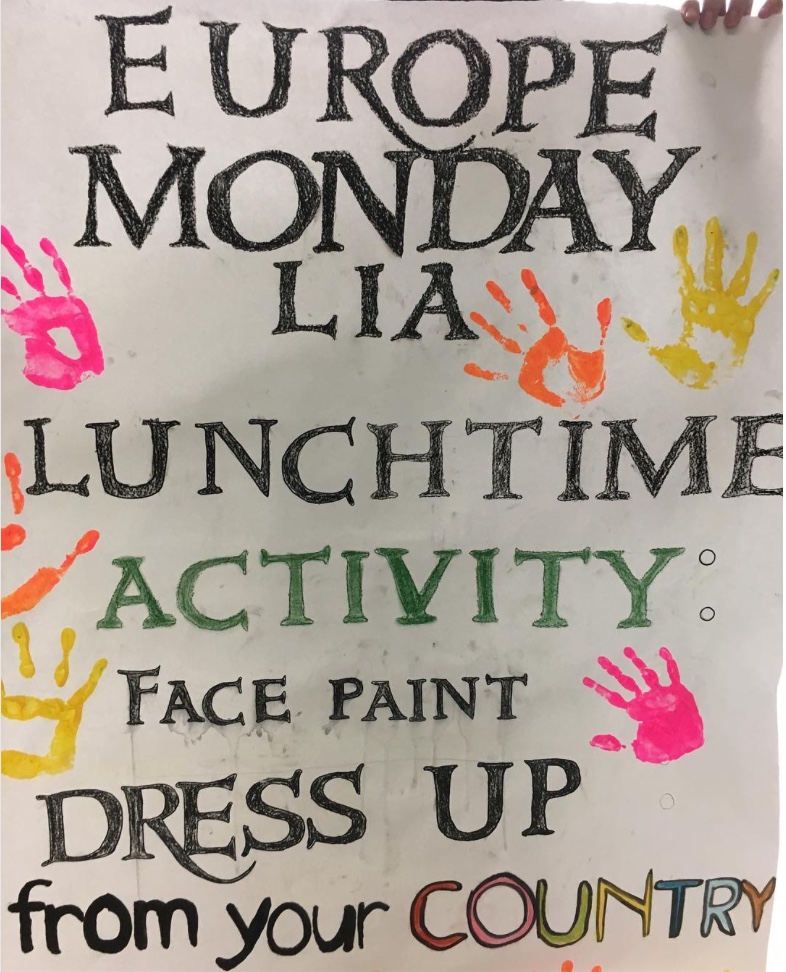 EUROPE
MONDAY
LIA
LUNCHTIME
ACTIVITY:
FACE PAINT
DRESS UP
from your COUNTRY